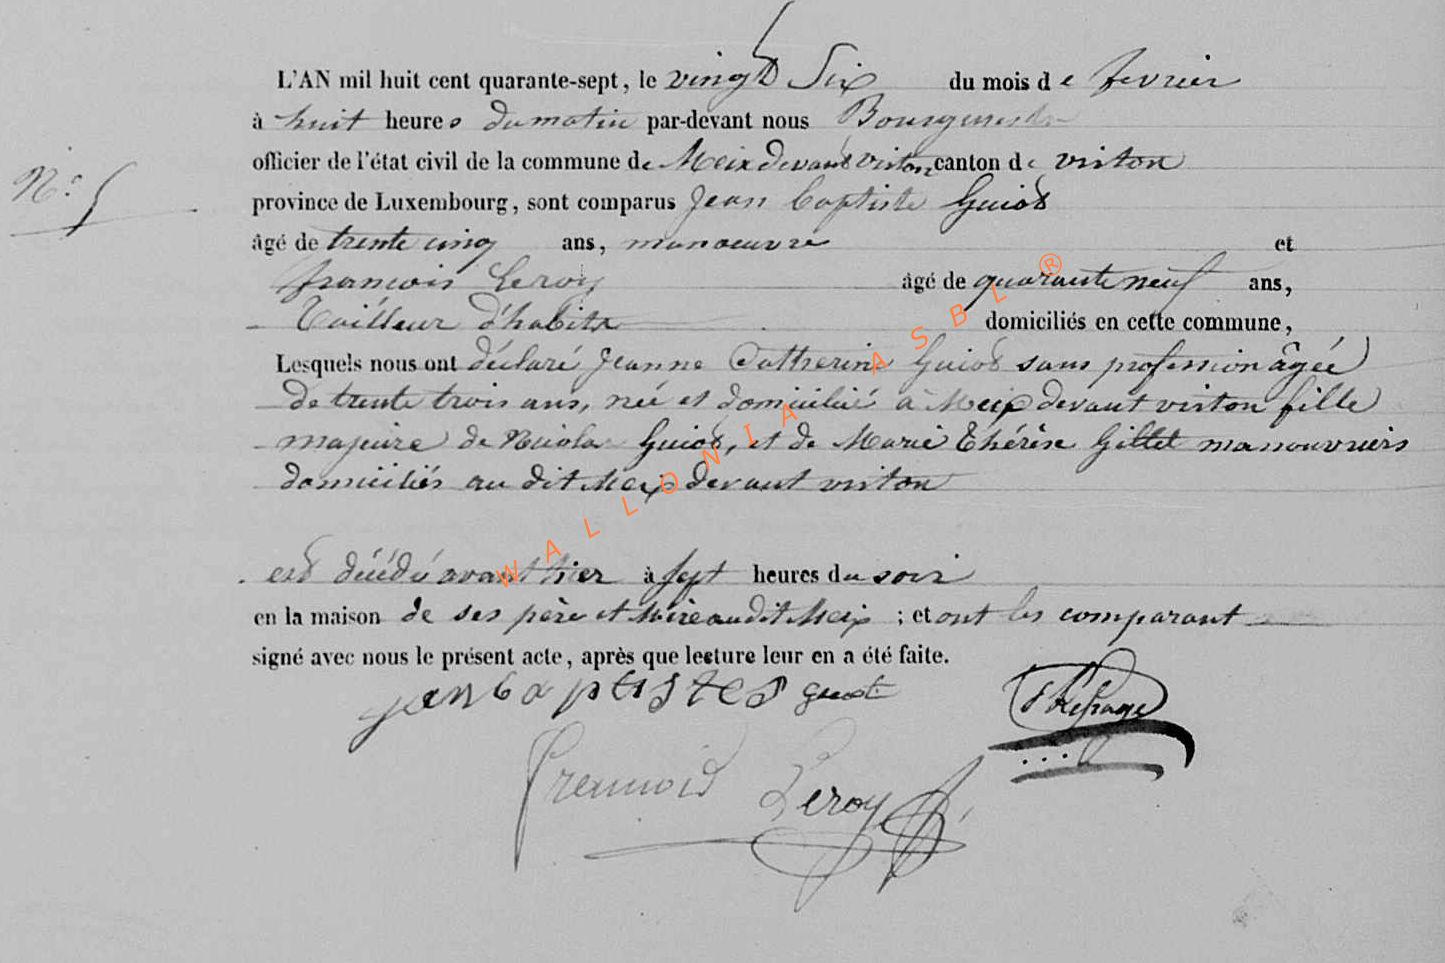 L'AN mil huit cent quarante-sept, le vingt Six du mois de fevrier
à huit heures du matin par-devant nous Bourgmestre
N° 5
officier de l'état civil de la commune de Meix devant Virton canton de virton
province de Luxembourg, sont comparus Jean Baptiste Guiot
âgé de trente cinq ans, manoeuvre et
francois Leroy âgé de quarante neuf ans,
Tailleur d'habits domiciliés en cette commune,
Lesquels nous ont déclaré Jeanne Catherine Guiot sans profession âgée
de trente trois ans, née et domiciliée à Meix devant virton fille
majeure de Nicolas Guiot, et de Marie Thérèse Gillet manouvriers
domiciliés au dit Meix devant virton
est décédée avant hier à sept heures du soir
en la maison de ses père et mère audit Meix ; et ont les comparant
signé avec nous le présent acte, après que lecture leur en a été faite.
jen baptistes guiot
francois Leroy
WALLONIA ASBL ®